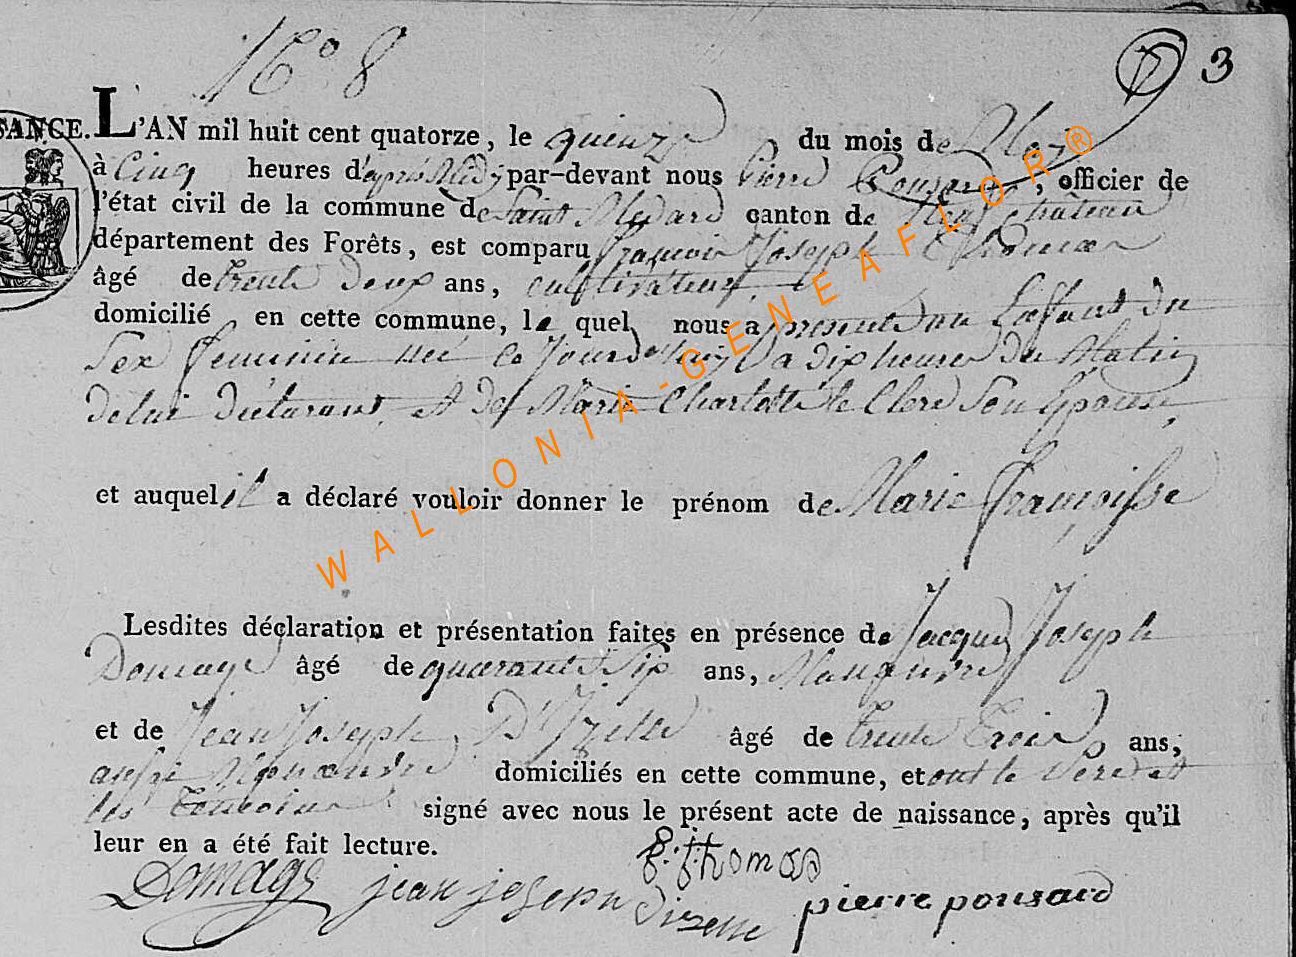 N° 8
3
SANCE. L'AN mil huit cent quatorze, le quinze du mois de May
à Cinq heures d'après Midy par-devant nous Pierre Pousard, officier de
l'état civil de la commune de Saint Medard canton de Neufchâteau
département des Forêts, est comparu françois Joseph Thomas
âgé de trente deux ans, cultivateur
domicilié en cette commune, le quel nous a presenté un Enfant du
Sex feminin née Ce Jourdhuy a dix heures du Matin
de lui déclarant et de Marie Charlotte le Clerc Son Epouse,
et auquel il a déclaré vouloir donner le prénom de Marie françoisse
Lesdites déclaration et présentation faites en présence de Jacque Joseph
Domage âgé de quarante Six ans, Manœuvre
et de Jean Joseph D'Izelle âgé de trente trois ans,
aussi Manœuvre domiciliés en cette commune, et ont le Pere et
les témoins signé avec nous le présent acte de naissance, après qu'il
leur en a été fait lecture.
Domage jean joseph dizelle f: j: thomas pierre pousard
WALLONIA-GENEAFLOR®